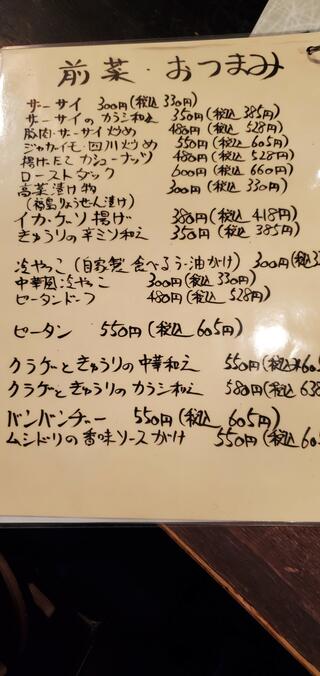 前菜・おつまみ
ザーサイ 300円(税込 330円)
ザーサイの カラシ和え 350円(税込 385円)
豚肉・ザーサイ炒め 480円(税込 528円)
ジャガイモ・四川炒め 550円(税込 605円)
揚げたて カシューナッツ 480円(税込 528円)
ローストダック 600円(税込 660円)
高菜漬け物 300円(税込 330円)
(福島りょうぜん漬け)
イカ・ゲソ揚げ 380円(税込 418円)
きゅうりの辛ミソ和え 350円(税込 385円)
冷やっこ(自家製 食べるラー油がけ) 300円(税込
中華風冷やっこ 300円(税込 330円)
ピータンドーフ 480円(税込 528円)
ピータン 550円(税込 605円)
クラゲときゅうりの中華和え 550円(税込 605
クラゲときゅうりのカラシ和え 580円(税込 638
バンバンヂー 550円(税込 605円)
ムシドリの香味ソースがけ 550円(税込 605